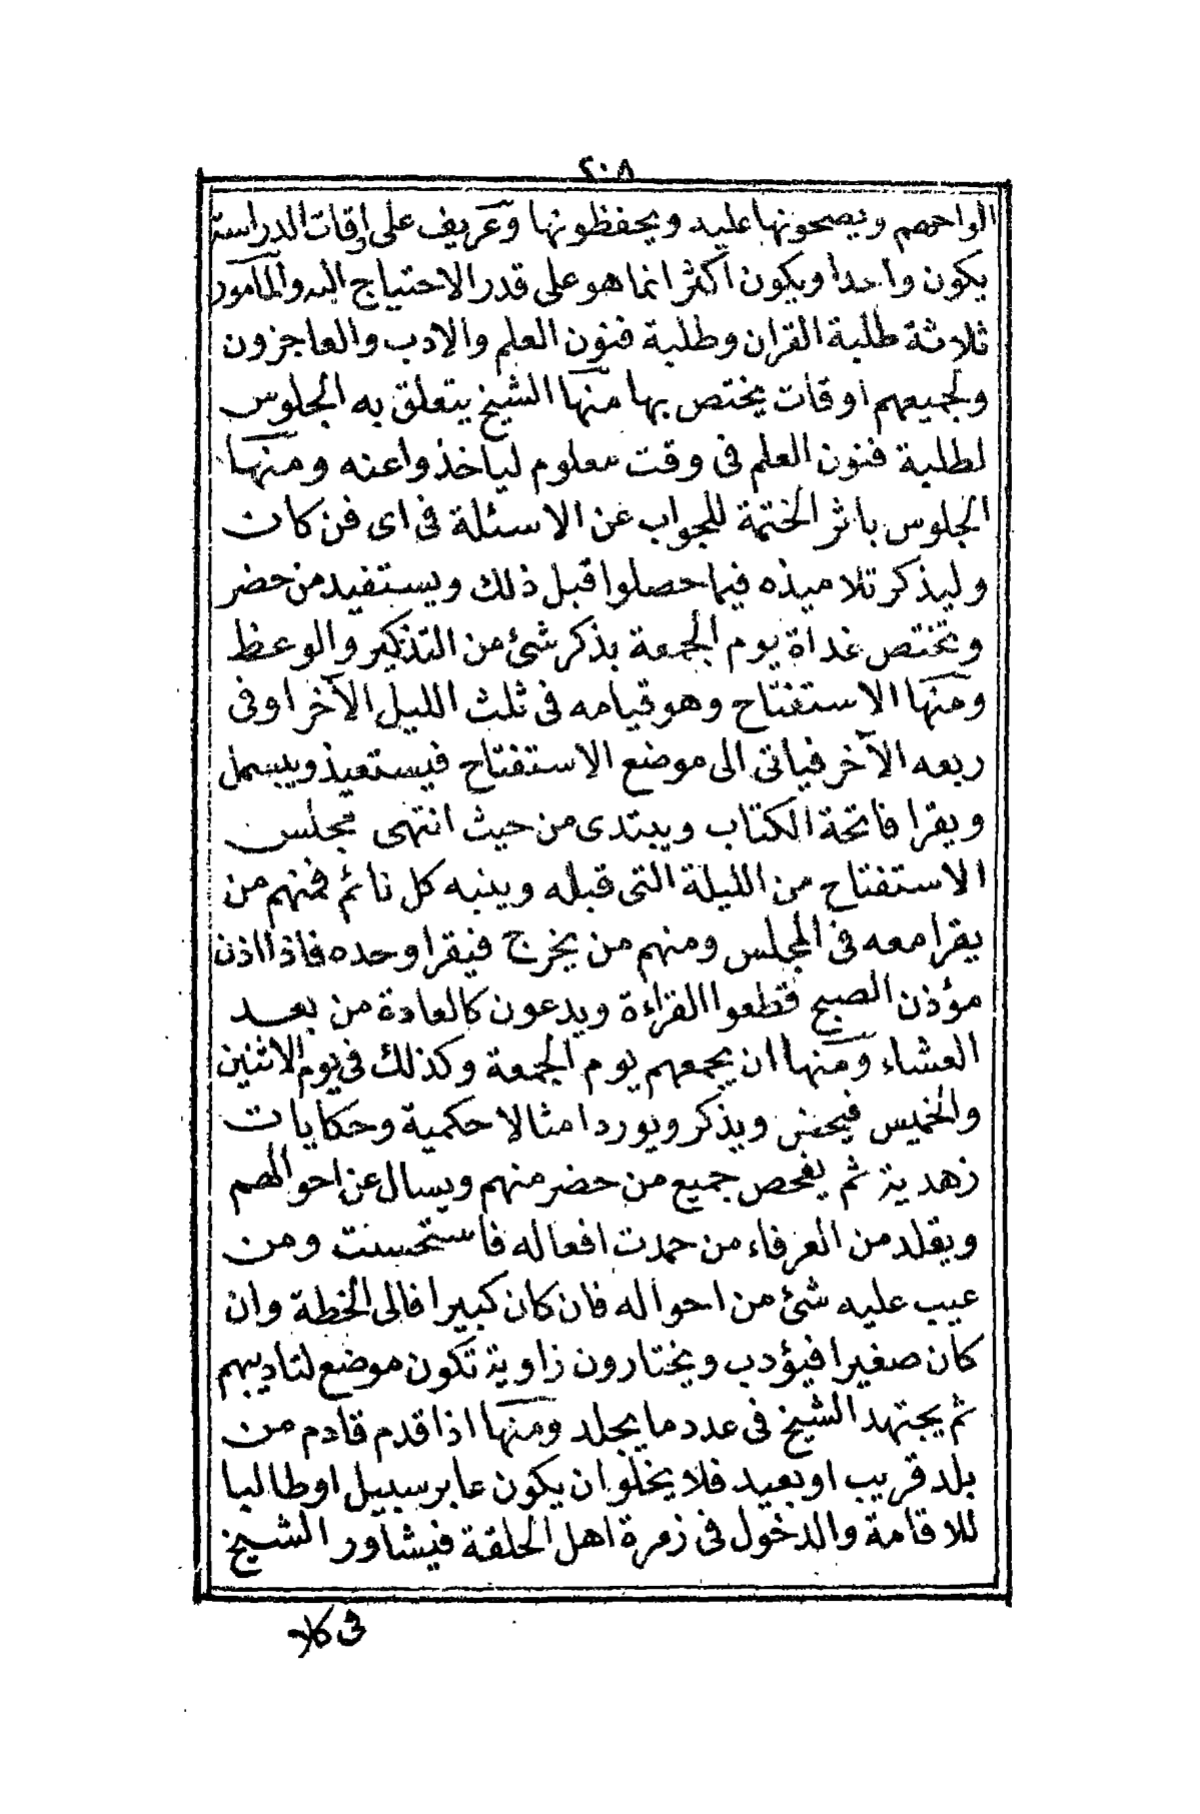 ٢٠٨
الواحهم ويصححونها عليه ويحفظونها وعريف على اوقات الدراسة
يكون واحدا ويكون اكثر انما هو على قدر الاحتياج اليه والمأمور
ثلاثة طلبة القران وطلبة فنون العلم والادب والعاجزون
ولجميعهم اوقات يختص بها منها الشيخ يتعلق به الجلوس
لطلبة فنون العلم فى وقت معلوم لياخذوا عنه ومنها
الجلوس باثر الختمة للجواب عن الاسئلة فى اى فن كان
وليذكر تلاميذه فيما حصلوا قبل ذلك ويستفيد من حضر
وتختص غداة يوم الجمعة بذكر شئ من التذكير والوعظ
ومنها الاستفتاح وهو قيامه فى ثلث الليل الآخر او فى
ربعه الآخر فياتى الى موضع الاستفتاح فيستعيذ ويبسمل
ويقرا فاتحة الكتاب ويبتدى من حيث انتهى مجلس
الاستفتاح من الليلة التى قبله وينبه كل نائم فمنهم من
يقرا معه فى المجلس ومنهم من يخرج فيقرا وحده فاذا اذن
مؤذن الصبح قطعوا القراءة ويدعون كالعادة من بعد
العشاء ومنها ان يجمعهم يوم الجمعة وكذلك فى يوم الاثنين
والخميس فيحض ويذكر ويورد امثالا حكمية وحكايات
زهدية ثم يفحص جميع من حضر منهم ويسال عن احوالهم
ويقلد من العرفاء من حمدت افعاله فاستحسنت ومن
عيب عليه شئ من احواله فان كان كبيرا فالى الخطة وان
كان صغيرا فيؤدب ويختارون زاوية تكون موضع لتاديبهم
ثم يجتهد الشيخ فى عدد ما يجلد ومنها اذا قدم قادم من
بلد قريب او بعيد فلا يخلو ان يكون عابر سبيل او طالبا
للاقامة والدخول فى زمرة اهل الحلقة فيشاور الشيخ
فى كلا